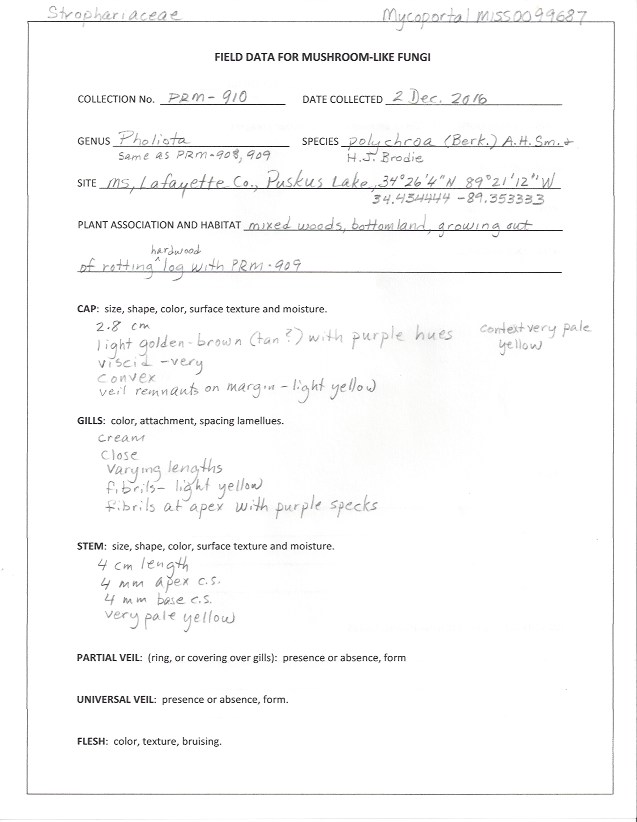 Strophariaceae Mycoportal MISS0099687
FIELD DATA FOR MUSHROOM-LIKE FUNGI
COLLECTION No. PRM-910 DATE COLLECTED 2 Dec. 2016
GENUS Pholiota SPECIES polychroa (Berk.) A.H.Sm. &
Same as PRM-908, 909 H.J. Brodie
SITE MS, Lafayette Co., Puskus Lake, 34°26'4"N 89°21'12"W
34.434444 -89.353333
PLANT ASSOCIATION AND HABITAT mixed woods, bottomland, growing out
hardwood
of rotting ^ log with PRM-909
CAP: size, shape, color, surface texture and moisture.
2.8 cm
light golden-brown (tan?) with purple hues context very pale
yellow
viscid - very
convex
veil remnants on margin - light yellow
GILLS: color, attachment, spacing lamellues.
cream
close
varying lengths
fibrils - light yellow
fibrils at apex with purple specks
STEM: size, shape, color, surface texture and moisture.
4 cm length
4 mm apex c.s.
4 mm base c.s.
very pale yellow
PARTIAL VEIL: (ring, or covering over gills): presence or absence, form
UNIVERSAL VEIL: presence or absence, form.
FLESH: color, texture, bruising.